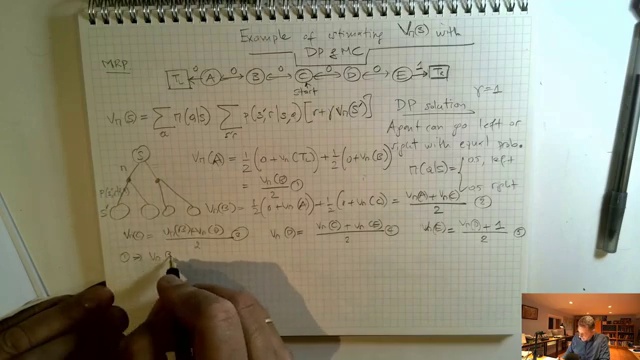 Example of estimating Vπ(s) with
DP & MC
MRP
T₁ ←0→ A ←0→ B ←0→ C ←0→ D ←0→ E →1→ T₂
start
Vπ(s) = Σₐ π(a|s) Σ p(s',r|s,a) [r + γVπ(s')]
DP solution γ=1
Agent can go left or
right with equal prob.
π(a|s) = { 0.5, left
0.5 right
S
π
s'
Vπ(A) = 1/2 (0 + Vπ(T₁)) + 1/2 (0 + Vπ(B))
= Vπ(B)/2 ①
Vπ(B) = 1/2 (0 + Vπ(A)) + 1/2 (0 + Vπ(C)) = (Vπ(A) + Vπ(C))/2 ②
Vπ(C) = (Vπ(B) + Vπ(D))/2 ③ Vπ(D) = (Vπ(C) + Vπ(E))/2 ④ Vπ(E) = (Vπ(D) + 1)/2 ⑤
① ⇒ Vπ(B